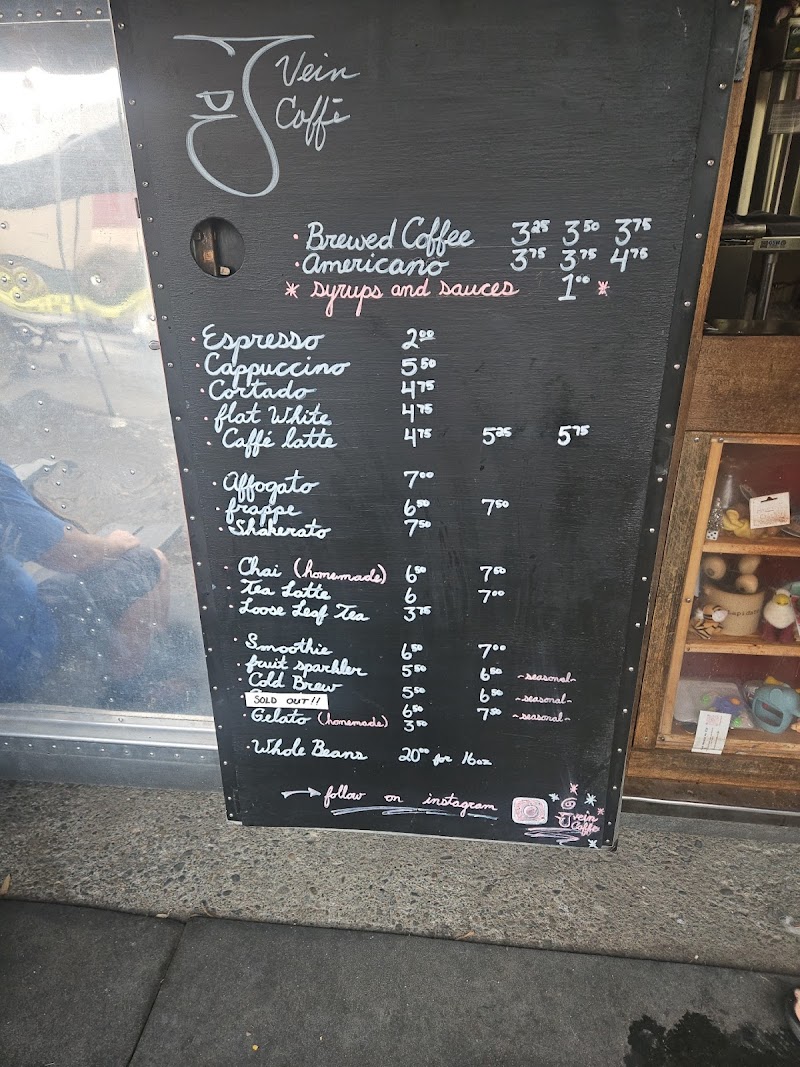 Vein
Caffé
Brewed Coffee 3.25 3.50 3.75
Americano 3.75 3.75 4.75
* syrups and sauces 1.00 *
Espresso 2.00
Cappuccino 5.50
Cortado 4.75
flat White 4.75
Caffé latte 4.75 5.25 5.75
Affogato 7.00
frappe 6.50 7.50
Shakerato 7.50
Chai (homemade) 6.50 7.50
Tea Latte 6 7.00
Loose Leaf Tea 3.75
Smoothie 6.50 7.00
fruit sparkler 5.50 6.50 ~seasonal~
Cold Brew 5.50 6.50 ~seasonal~
SOLD OUT!! 6.50 7.50 ~seasonal~
Gelato (homemade) 3.50
Whole Beans 20.00 for 16oz
→ follow on instagram
vein
Caffé